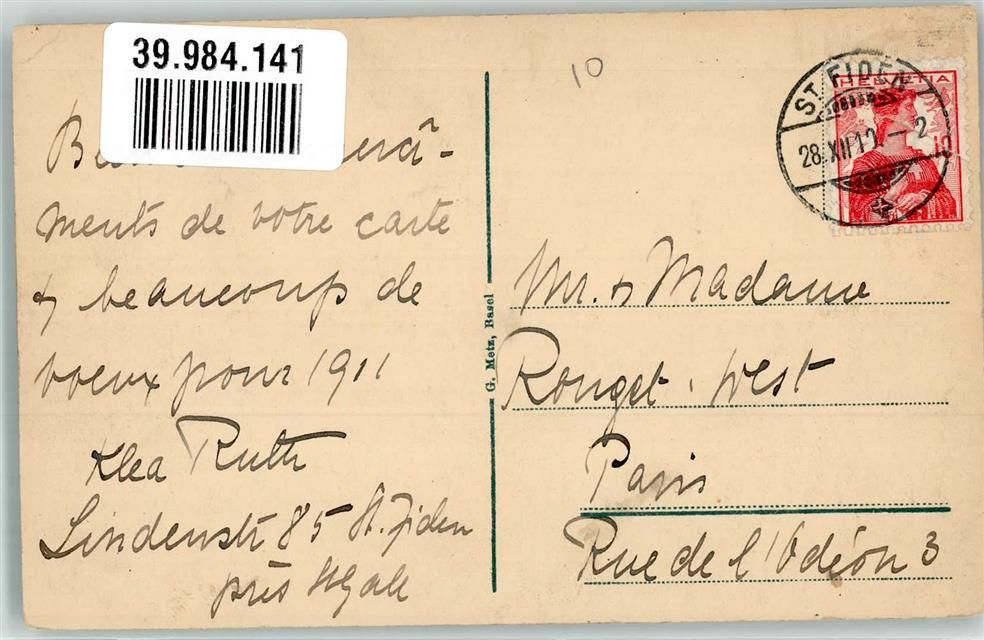 39.984.141
10
ST. FIDEN
28.XII.10.–2
HELVETIA
10
ments de votre carte
& beaucoup de
voeux pour 1911
Klea Ruth
Lindenstr 85 St. Fiden
près St Gall
G. Metz, Basel
Mr. & Madame
Rouget. West
Paris
Rue de l'Odéon 3